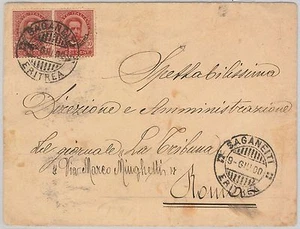 SAGANEITI
ERITREA
Spettabilissima
Direzione e Amministrazione
del giornale La Tribuna
Via Marco Minghetti
Roma
SAGANEITI
9-GIU.00
ERITREA